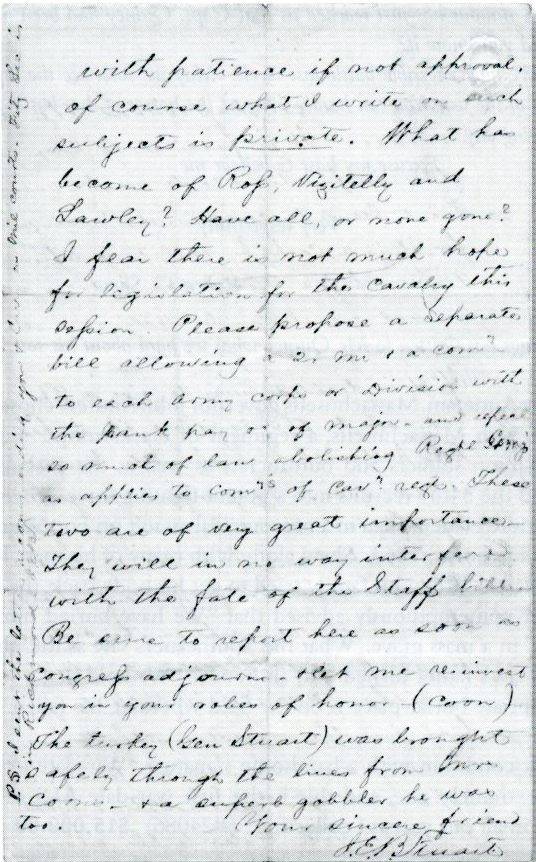 with patience if not approval.
of course what I write on such
subjects is private. What has
become of Ross, Vizitelly and
Lawley? Have all, or none gone?
I fear there is not much hope
for legislation for the Cavalry this
session. Please propose a separate
bill allowing a 2. m & a com
to each army corps or Division with
the rank pay &c of major - and repeal
so much of law abolishing Regtl
as applies to com of Cav regt. These
two are of very great importance -
They will in no way interfere
with the fate of the Staff bill
Be sure to report here as soon as
Congress adjourns - let me reinvest
you in your robes of honor - (coon)
The turkey (Gen Stuart) was brought
safely through the lines from
Coons, & a superb gobbler he was
too. Your sincere friend
JEB Stuart
P.S. I sent the letter recommending you
Richmond